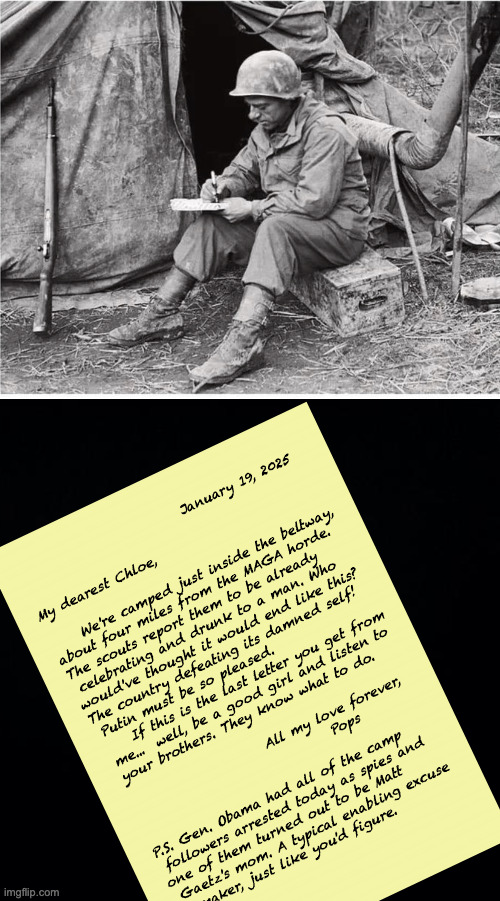 January 19, 2025
My dearest Chloe,
We're camped just inside the beltway,
about four miles from the MAGA horde.
The scouts report them to be already
celebrating and drunk to a man. Who
would've thought it would end like this?
The country defeating its damned self!
Putin must be so pleased.
If this is the last letter you get from
me... well, be a good girl and listen to
your brothers. They know what to do.
All my love forever,
Pops
P.S. Gen. Obama had all of the camp
followers arrested today as spies and
one of them turned out to be Matt
Gaetz's mom. A typical enabling excuse
maker, just like you'd figure.
imgflip.com